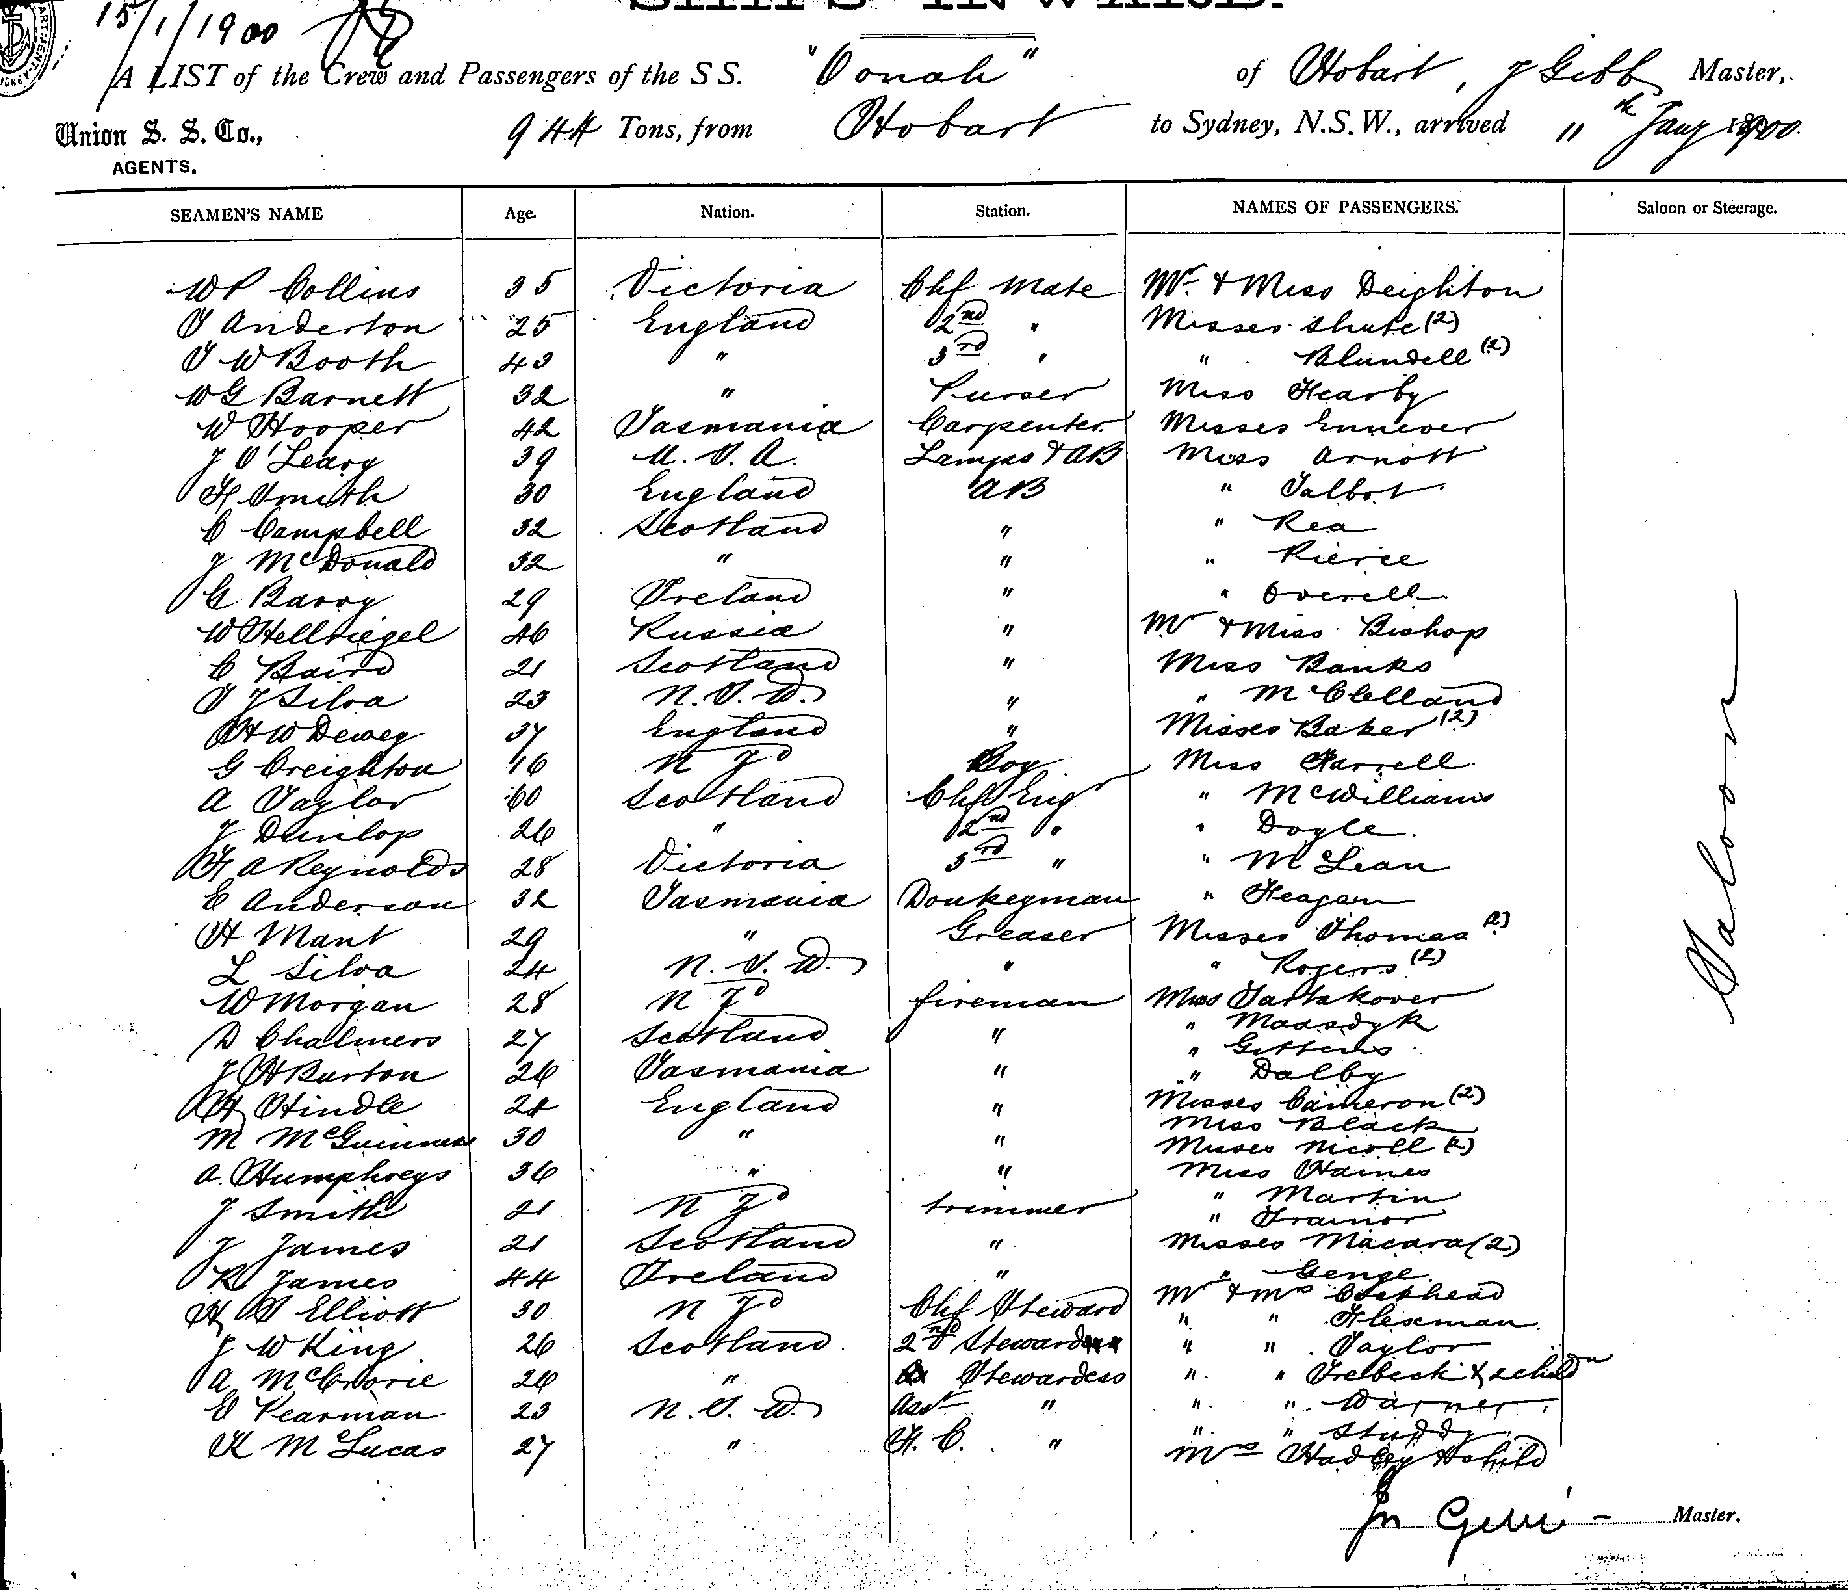 15/1/1900
SHIPS INWARD.
A LIST of the Crew and Passengers of the S S. "Oonah" of Hobart, J Gibb Master,
Union S. S. Co., 944 Tons, from Hobart to Sydney, N.S.W., arrived " th Jany 1900.
AGENTS.
SEAMEN'S NAME Age. Nation. Station. NAMES OF PASSENGERS. Saloon or Steerage.
WP Collins 35 Victoria Chf Mate Mr & Miss Deighton
T Anderton 25 England 2nd " Misses Shute (2)
T W Booth 43 " 3rd " " Blundell (2)
WG Barnett 32 " Purser Miss Hearby
W Hooper 42 Tasmania Carpenter Misses Ennever
J O'Leary 39 U.S.A. Lamps & AB Miss Arnott
H Smith 30 England AB " Talbot
C Campbell 32 Scotland " " Rea
J McDonald 32 " " " Pierce
G Barry 29 Ireland " " Overell
W Hellriegel 46 Russia " Mr & Miss Bishop
C Baird 21 Scotland " Miss Banks
T J Silva 23 N.S.W. " " McClelland
HW Dewey 37 England " Misses Baker (2)
G Creighton 16 N Zd Boy Miss Farrell
A Taylor 60 Scotland Chf Engr " McWilliams
J Dunlop 26 " 2nd " " Doyle.
H A Reynolds 28 Victoria 3rd " " McLean
E Anderson 32 Tasmania Donkeyman " Heagan
H Mant 29 " Greaser Misses Thomas (2)
L Silva 24 N.S.W. " " Rogers (2)
W Morgan 28 N Zd fireman Miss Tartakover
D Chalmers 27 Scotland " " Maasdyk
" Gittens
J H Burton 26 Tasmania " " Dalby
H Hindle 28 England " Misses Cameron (2)
Miss Black
M McGuinness 30 " " Misses Nicoll (2)
A. Humphreys 36 " " Miss Haines
J Smith 21 N Zd trimmer " Martin
" Trainor
J James 21 Scotland " Misses Macara (2)
R James 44 Ireland " " Genge
H S Elliott 30 N Zd Chf Steward Mr & Mrs
" " Flexman
J W King 26 Scotland 2nd Steward " " Taylor
A McCrorie 26 " Stewardess " " Trebeck & 2 childn
E Pearman 23 N.S.W. Asst " " " Warner
" " Studdy
K M Lucas 27 " F. C. " Mrs Hadley & child
Saloon
Jn Gibb Master.